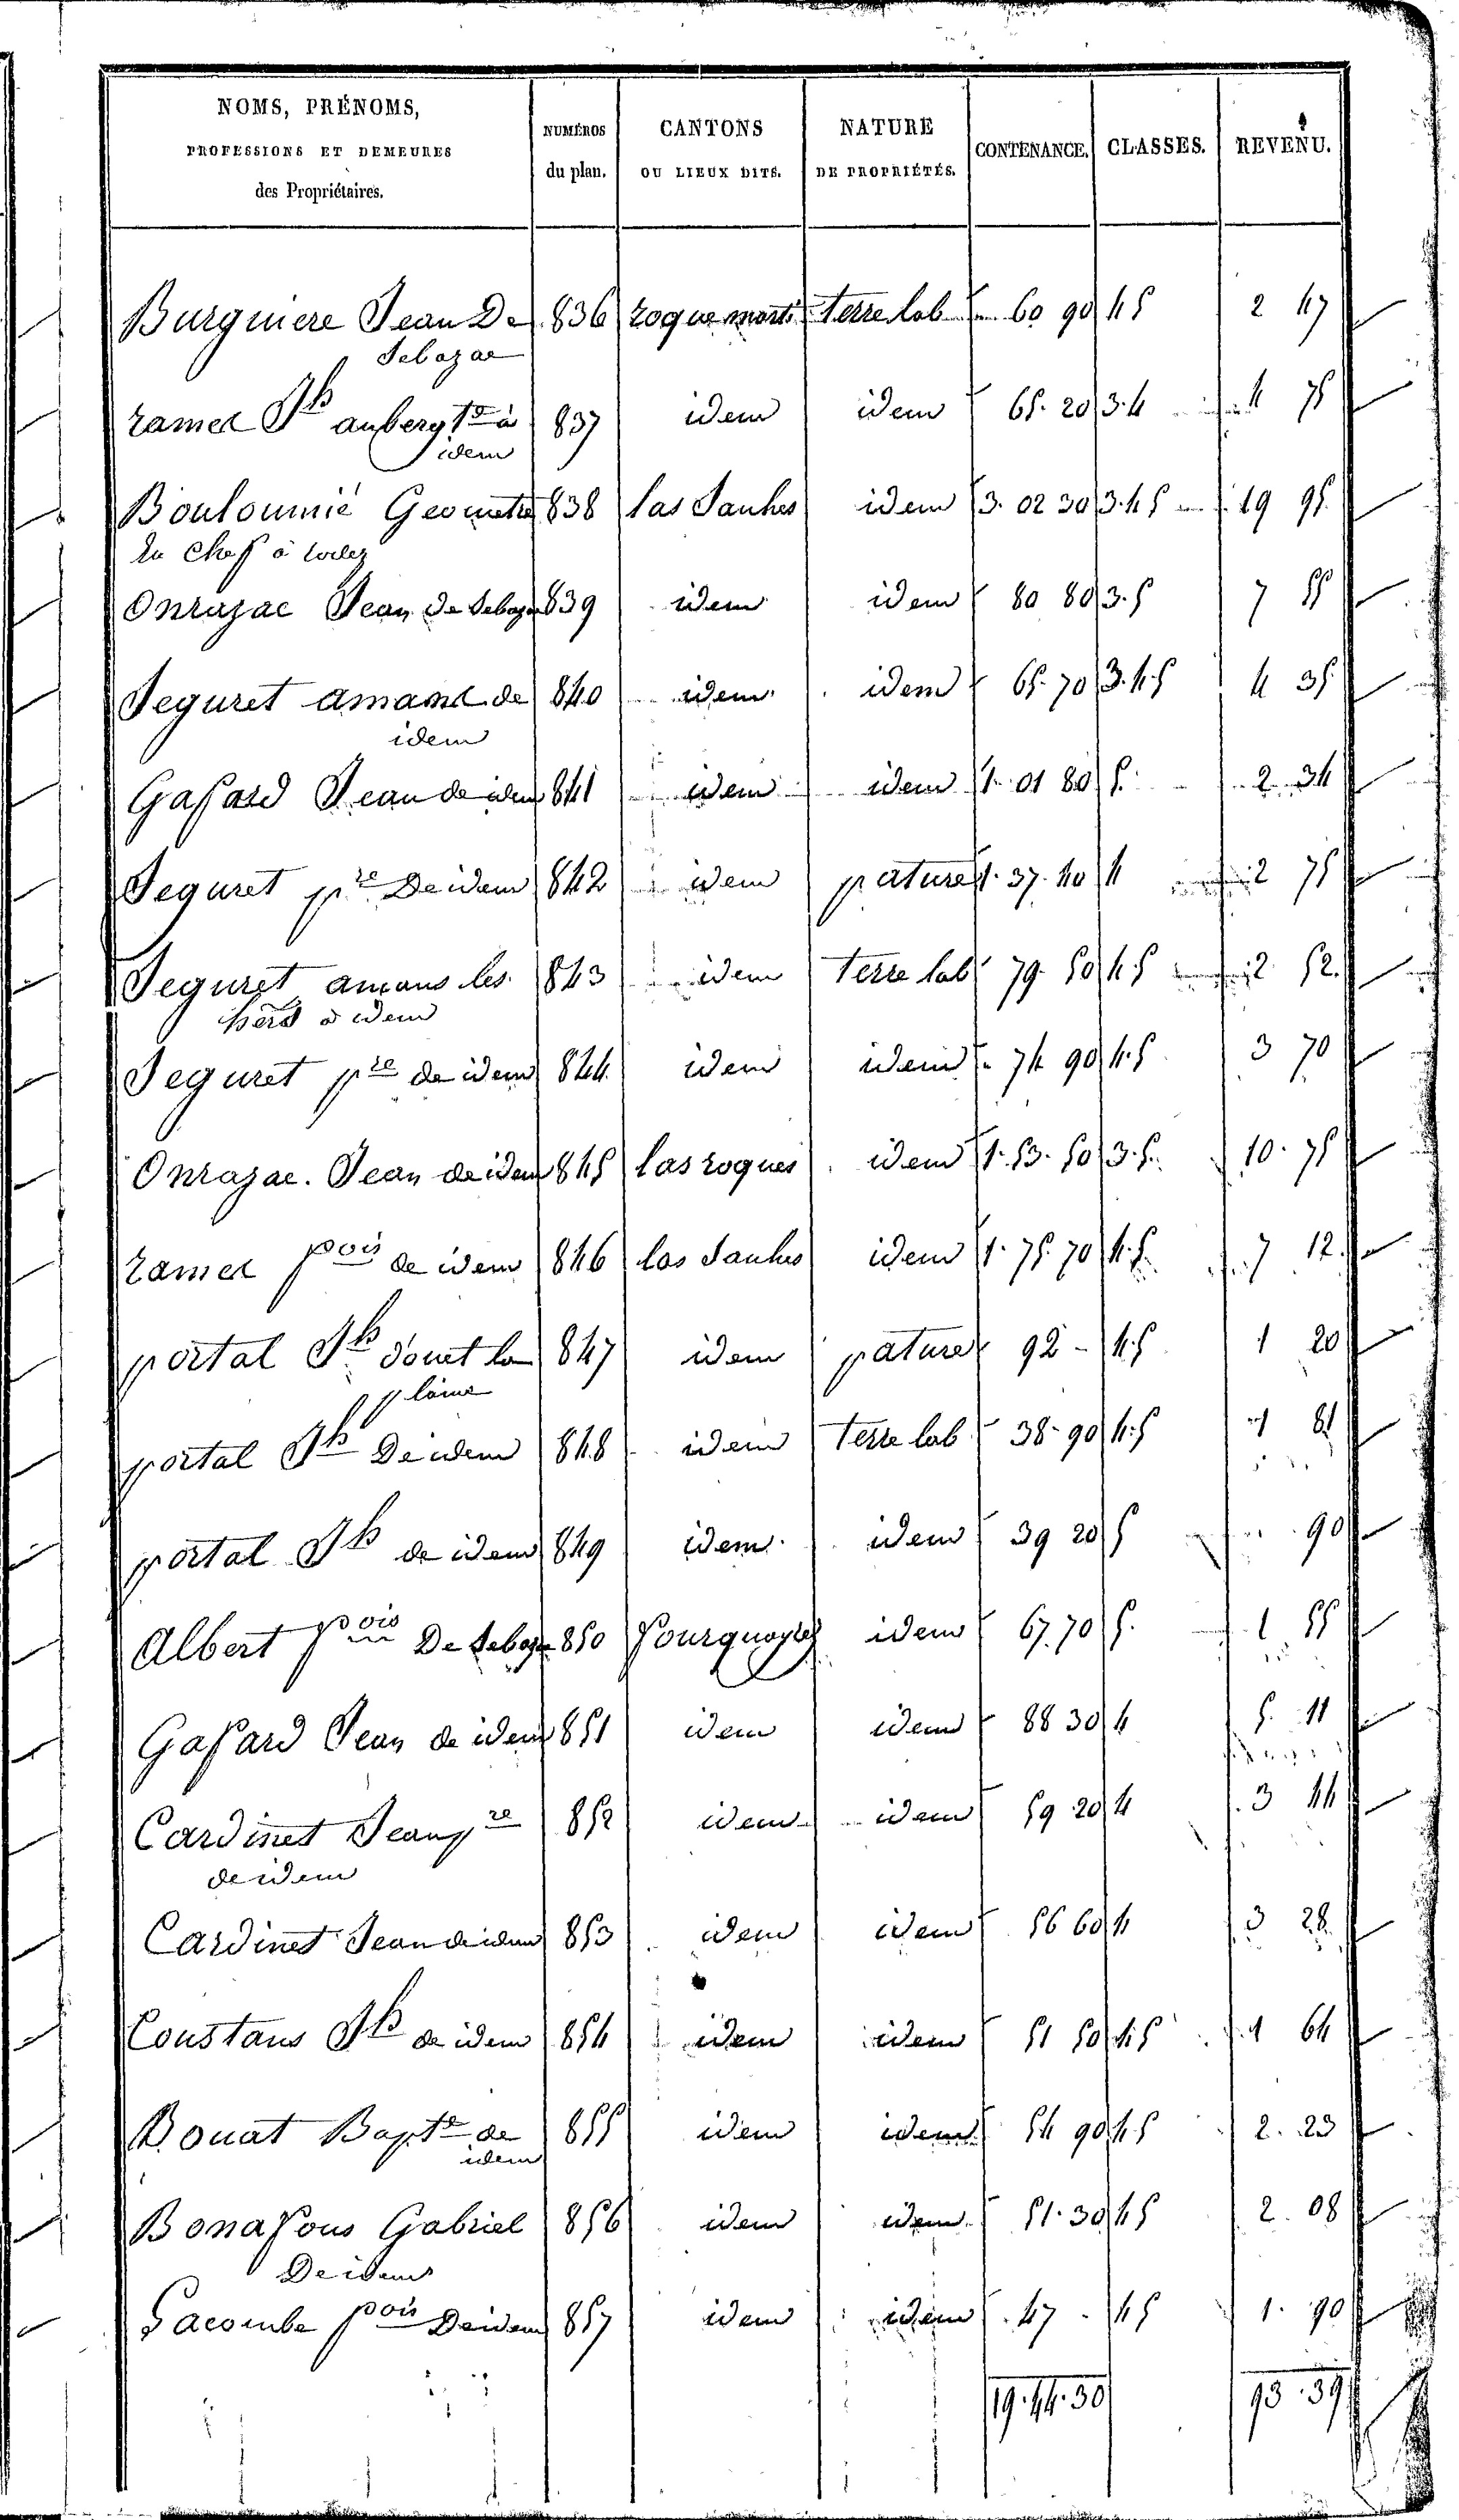 NOMS, PRÉNOMS,
PROFESSIONS ET DEMEURES
des Propriétaires.
NUMÉROS
du plan.
CANTONS
OU LIEUX DITS.
NATURE
DE PROPRIÉTÉS.
CONTENANCE.
CLASSES.
REVENU.
Burguiere Jean De 836 roque terre lab 60 90 4 5 2 47
Sebazac
ramel Jh auberg.te à 837 idem idem 65. 20 3.4 4 75
idem
Bouloumié Geometre 838 las Sanhes idem 3. 02 30 3.4 5 19 95
En Chef à rodez
Onrazac Jean de Sebazac 839 idem idem 80 80 3.5 7 55
Seguret amans de 840 idem idem 65. 70 3.4.5 4 35
idem
Gaffard Jean de idem 841 idem idem 1. 01 80 5. 2 34
Seguret p.re De idem 842 idem pature 1. 37. 40 4 2 75
Seguret amans les 843 idem terre lab 79. 50 4 5 2 52
hers à idem
Seguret p.re de idem 844 idem idem 74 90 4.5 3 70
Onrazac. Jean de idem 845 las roques idem 1. 53. 50 3.5. 10. 75
ramel fçois de idem 846 las Sanhes idem 1. 75. 70 4.5. 7 12
portal Jh d'onet la 847 idem pature 92 - 4.5 1 20
plaine
portal Jh De idem 848 idem terre lab 38. 90 4.5 1 81
portal Jh de idem 849 idem idem 39 20 5 90
Albert fçois De Sebazac 850 idem 67. 70 5. 1 55
Gaffard Jean de idem 851 idem idem 88 30 4 5. 11
Cardinet Jean p.re 852 idem idem 59 20 4 3 44
de idem
Cardinet Jean de idem 853 idem idem 56 60 4 3 28
Constans Jh de idem 854 idem idem 51 50 4 5 1 64
Bouat Bapt.te de 855 idem idem 54 90 4 5 2. 23
idem
Bonafous Gabriel 856 idem idem 51. 30 4 5 2. 08
De idem
Lacombe fçois De idem 857 idem idem 47 - 4 5 1. 90
19. 44. 30 93. 39